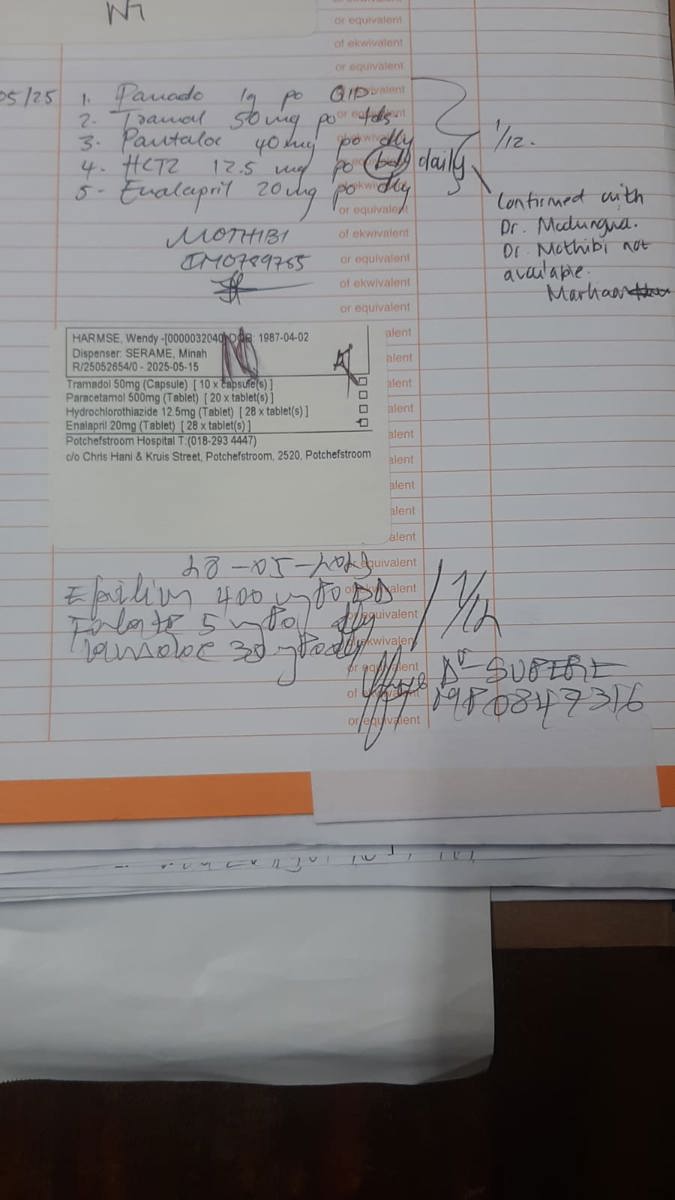 or equivalent
of ekwivalent
or equivalent
05/25 1. Panado 1g po QID
2. Tramal 50mg po tds
3. Pantaloc 40mg po dly
4. HCTZ 12.5 mg po daily
5- Enalapril 20mg po dly
1/12.
or equivalent
Confirmed with
Dr.
Dr. Mothibi not
available.
MOTHIBI
of ekwivalent
or equivalent
of ekwivalent
or equivalent
HARMSE, Wendy -[0000032040 1987-04-02
Dispenser: SERAME, Minah
R/25052654/0 - 2025-05-15
Tramadol 50mg (Capsule) [ 10 x capsule(s) ]
Paracetamol 500mg (Tablet) [ 20 x tablet(s) ]
Hydrochlorothiazide 12.5mg (Tablet) [ 28 x tablet(s) ]
Enalapril 20mg (Tablet) [ 28 x tablet(s) ]
Potchefstroom Hospital T:(018-293 4447)
c/o Chris Hani & Kruis Street, Potchefstroom, 2520, Potchefstroom
alent
alent
alent
alent
alent
alent
alent
alent
alent
equivalent
Epilim 400 mg PO BD
5 mg PO dly
30 mg PO dly
1/12
or equivalent
of ekwivalent
or equivalent
Dr